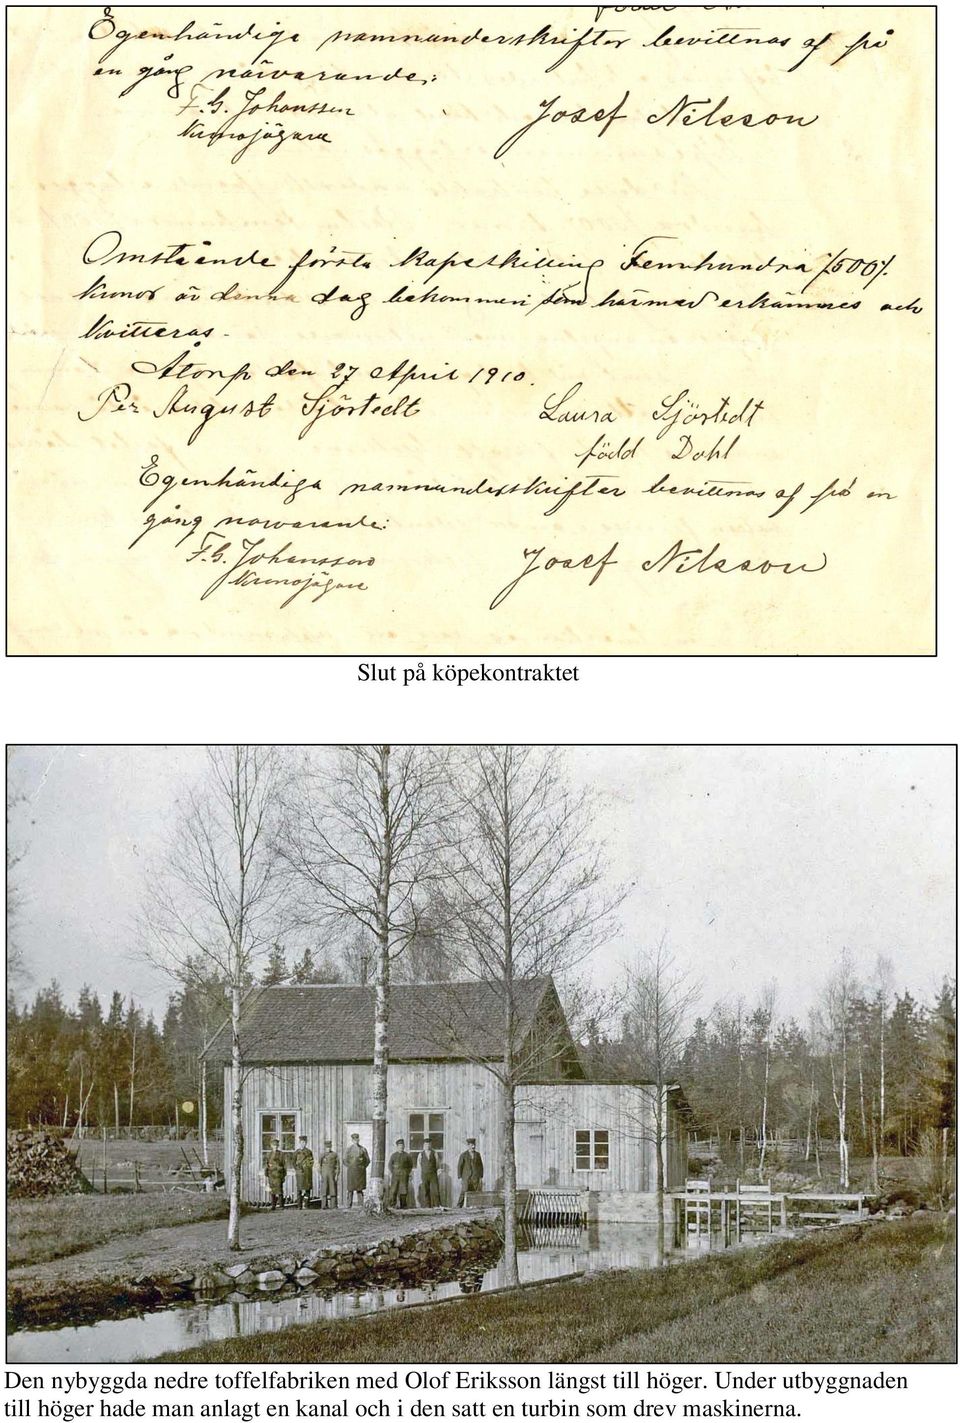 Egenhändiga namnunderskrifter bevittnas af på
en gång närvarande:
F.G. Johansson Josef Nilsson
Kronojägare
Omstående första köpeskilling Femhundra /500/.
Kronor är denna dag bekommen som härmed erkännes och
kvitteras.
Åtorp den 27 April 1910.
Per August Sjörtedt Laura Sjörtedt
född Dahl
Egenhändiga namnunderskrifter bevittnas af på en
gång närvarande:
F.G. Johansson Josef Nilsson
Kronojägare
Slut på köpekontraktet
Den nybyggda nedre toffelfabriken med Olof Eriksson längst till höger. Under utbyggnaden
till höger hade man anlagt en kanal och i den satt en turbin som drev maskinerna.